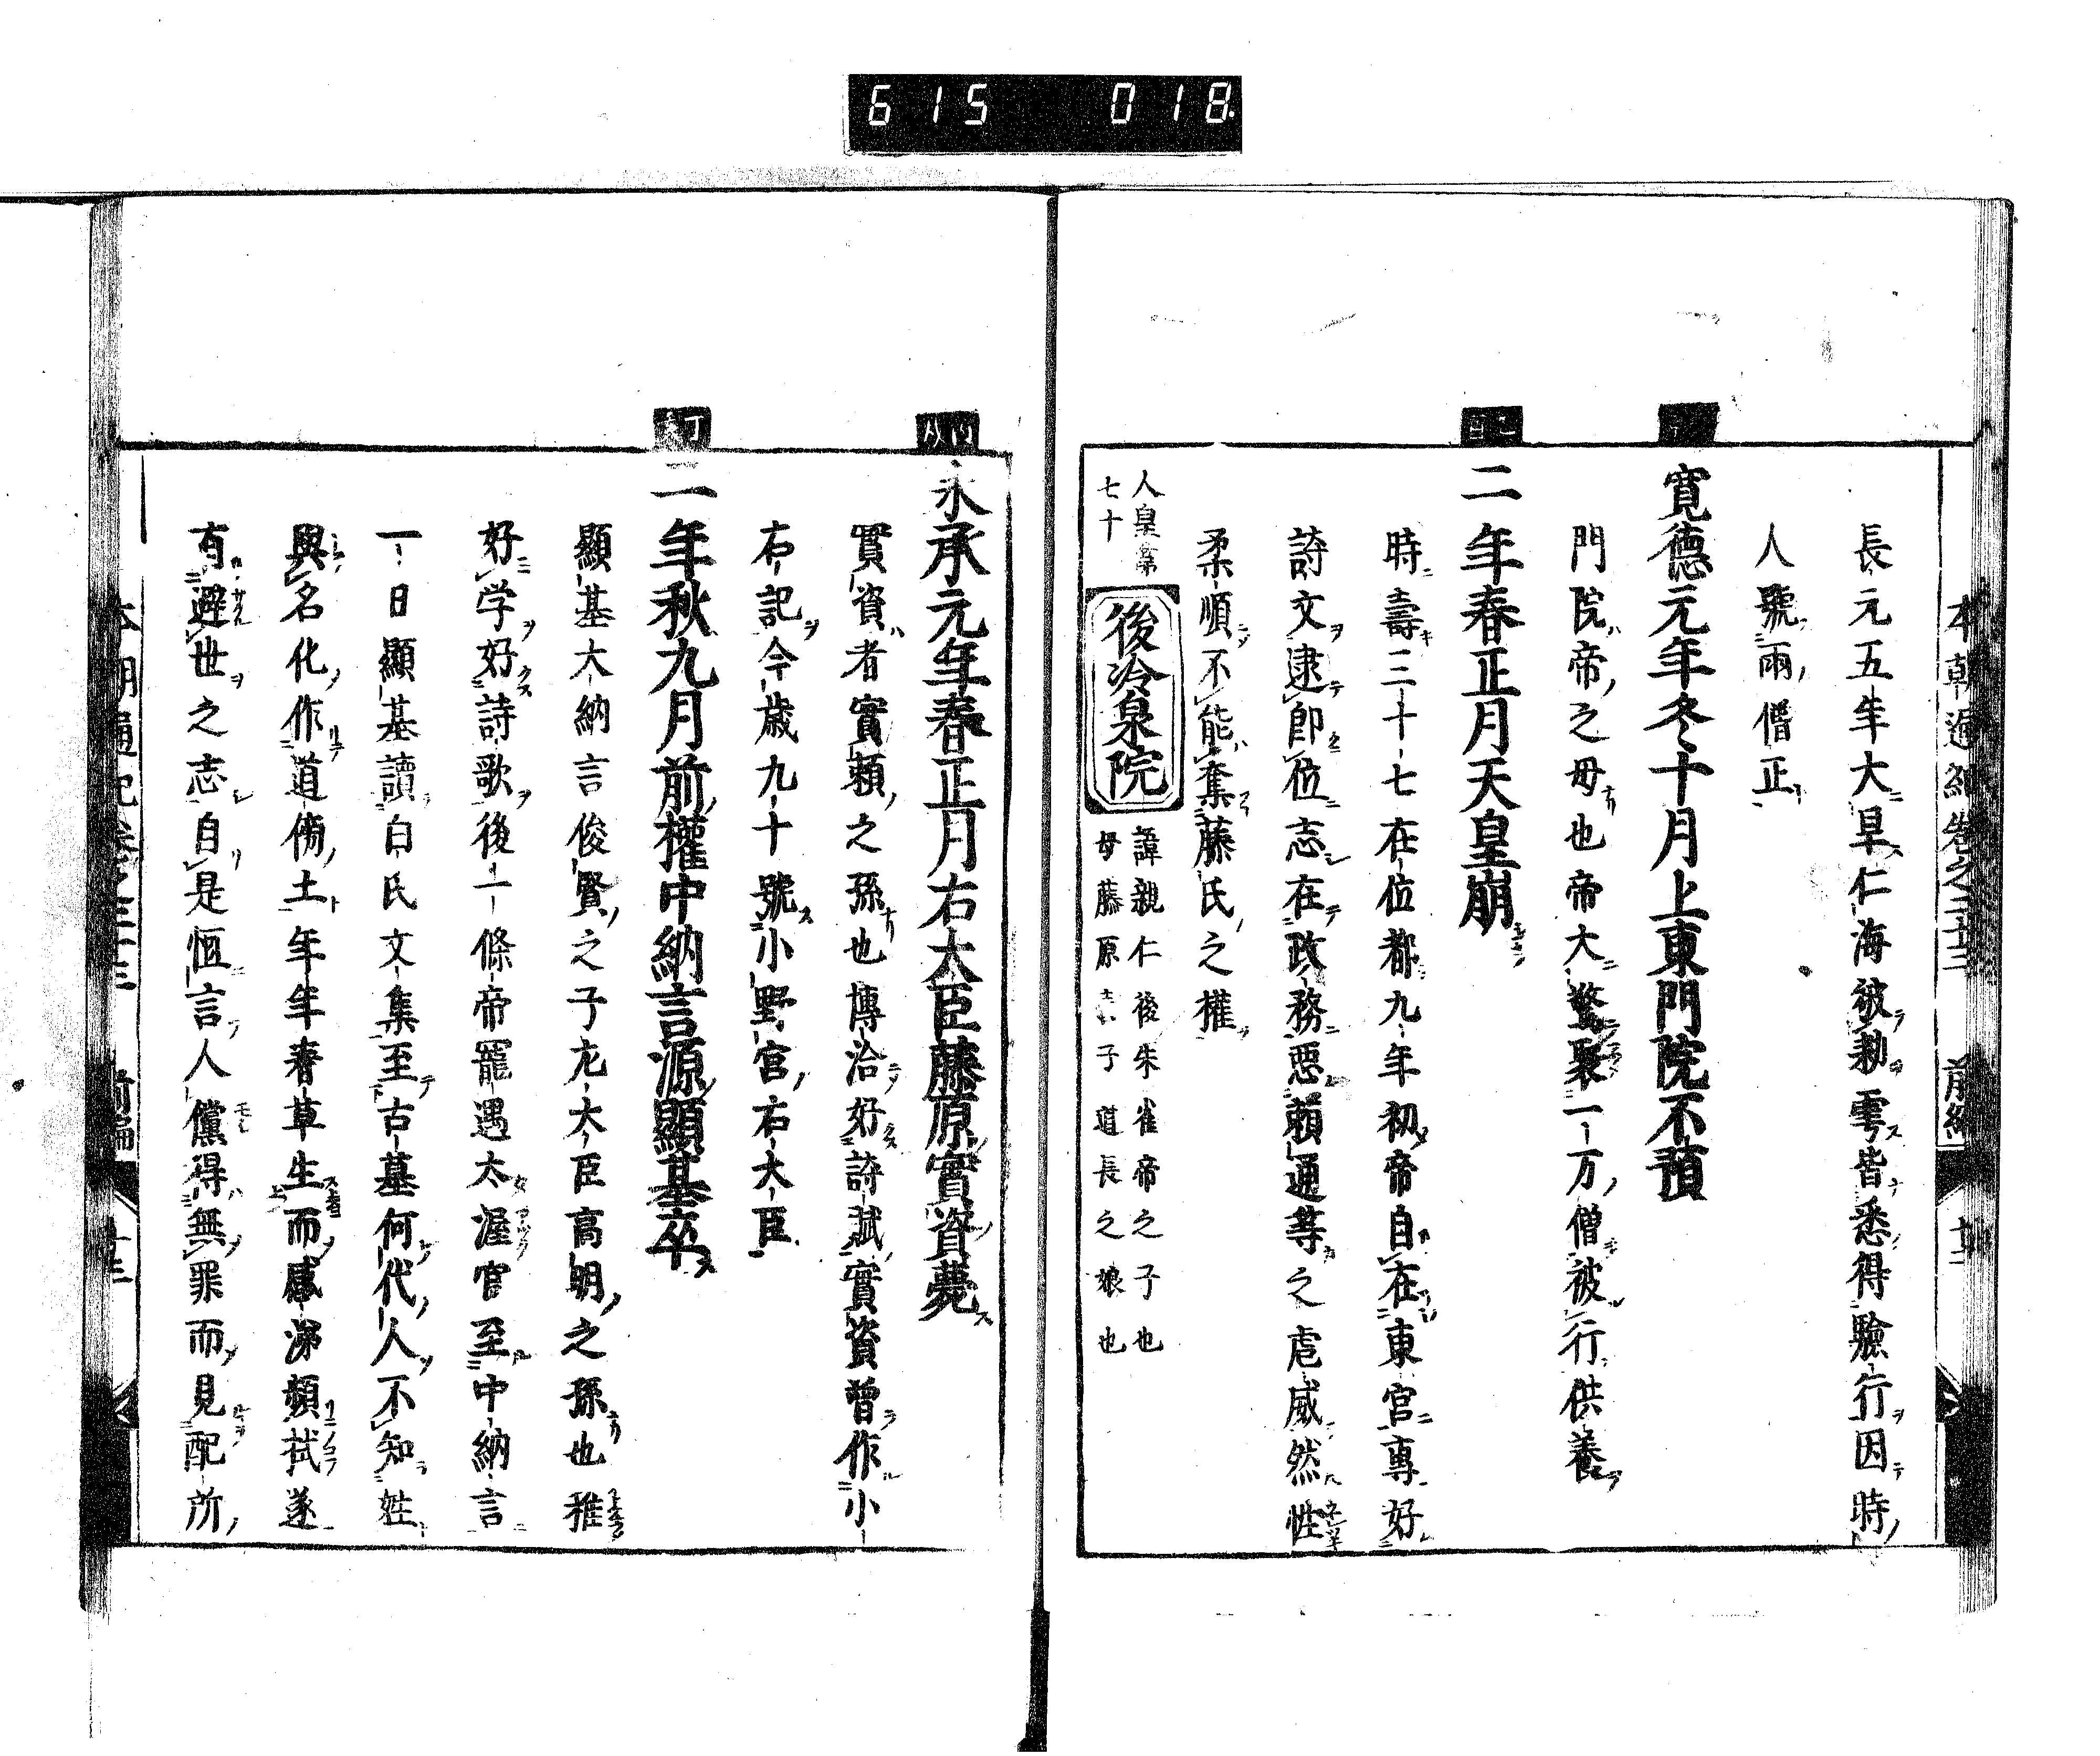 615 018
本朝通紀卷之二十三 前編
長元五年大旱仁海被勅雩皆悉得驗行因時
人號雨僧正
寛德元年冬十月上東門院不預
門院帝之母也帝大驚聚一万僧被行供養
二年春正月天皇崩
時壽三十七在位都九年初帝自在東宮專好
詩文逮即位志在政務惡賴通等之虐威然性
柔順不能奪藤氏之權
人皇第
七十
後冷泉院
諱親仁後朱雀帝之子也
母藤原 子道長之娘也
永承元年春正月右大臣藤原實資薨
實資者實賴之孫也博洽好詩賦實資曾作小
右記今歳九十號小野宮右大臣
二年秋九月前權中納言源顯基卒
顯基大納言俊賢之子左大臣高明之孫也雅
好学好詩歌後一條帝寵遇太渥官至中納言
一日顯基讀白氏文集至古墓何代人不知姓
與名化作道傍土年年春草生而感涕頻拭遂
有避世之志自是恒言人儻得無罪而見配所
本朝通紀卷之二十三 前編